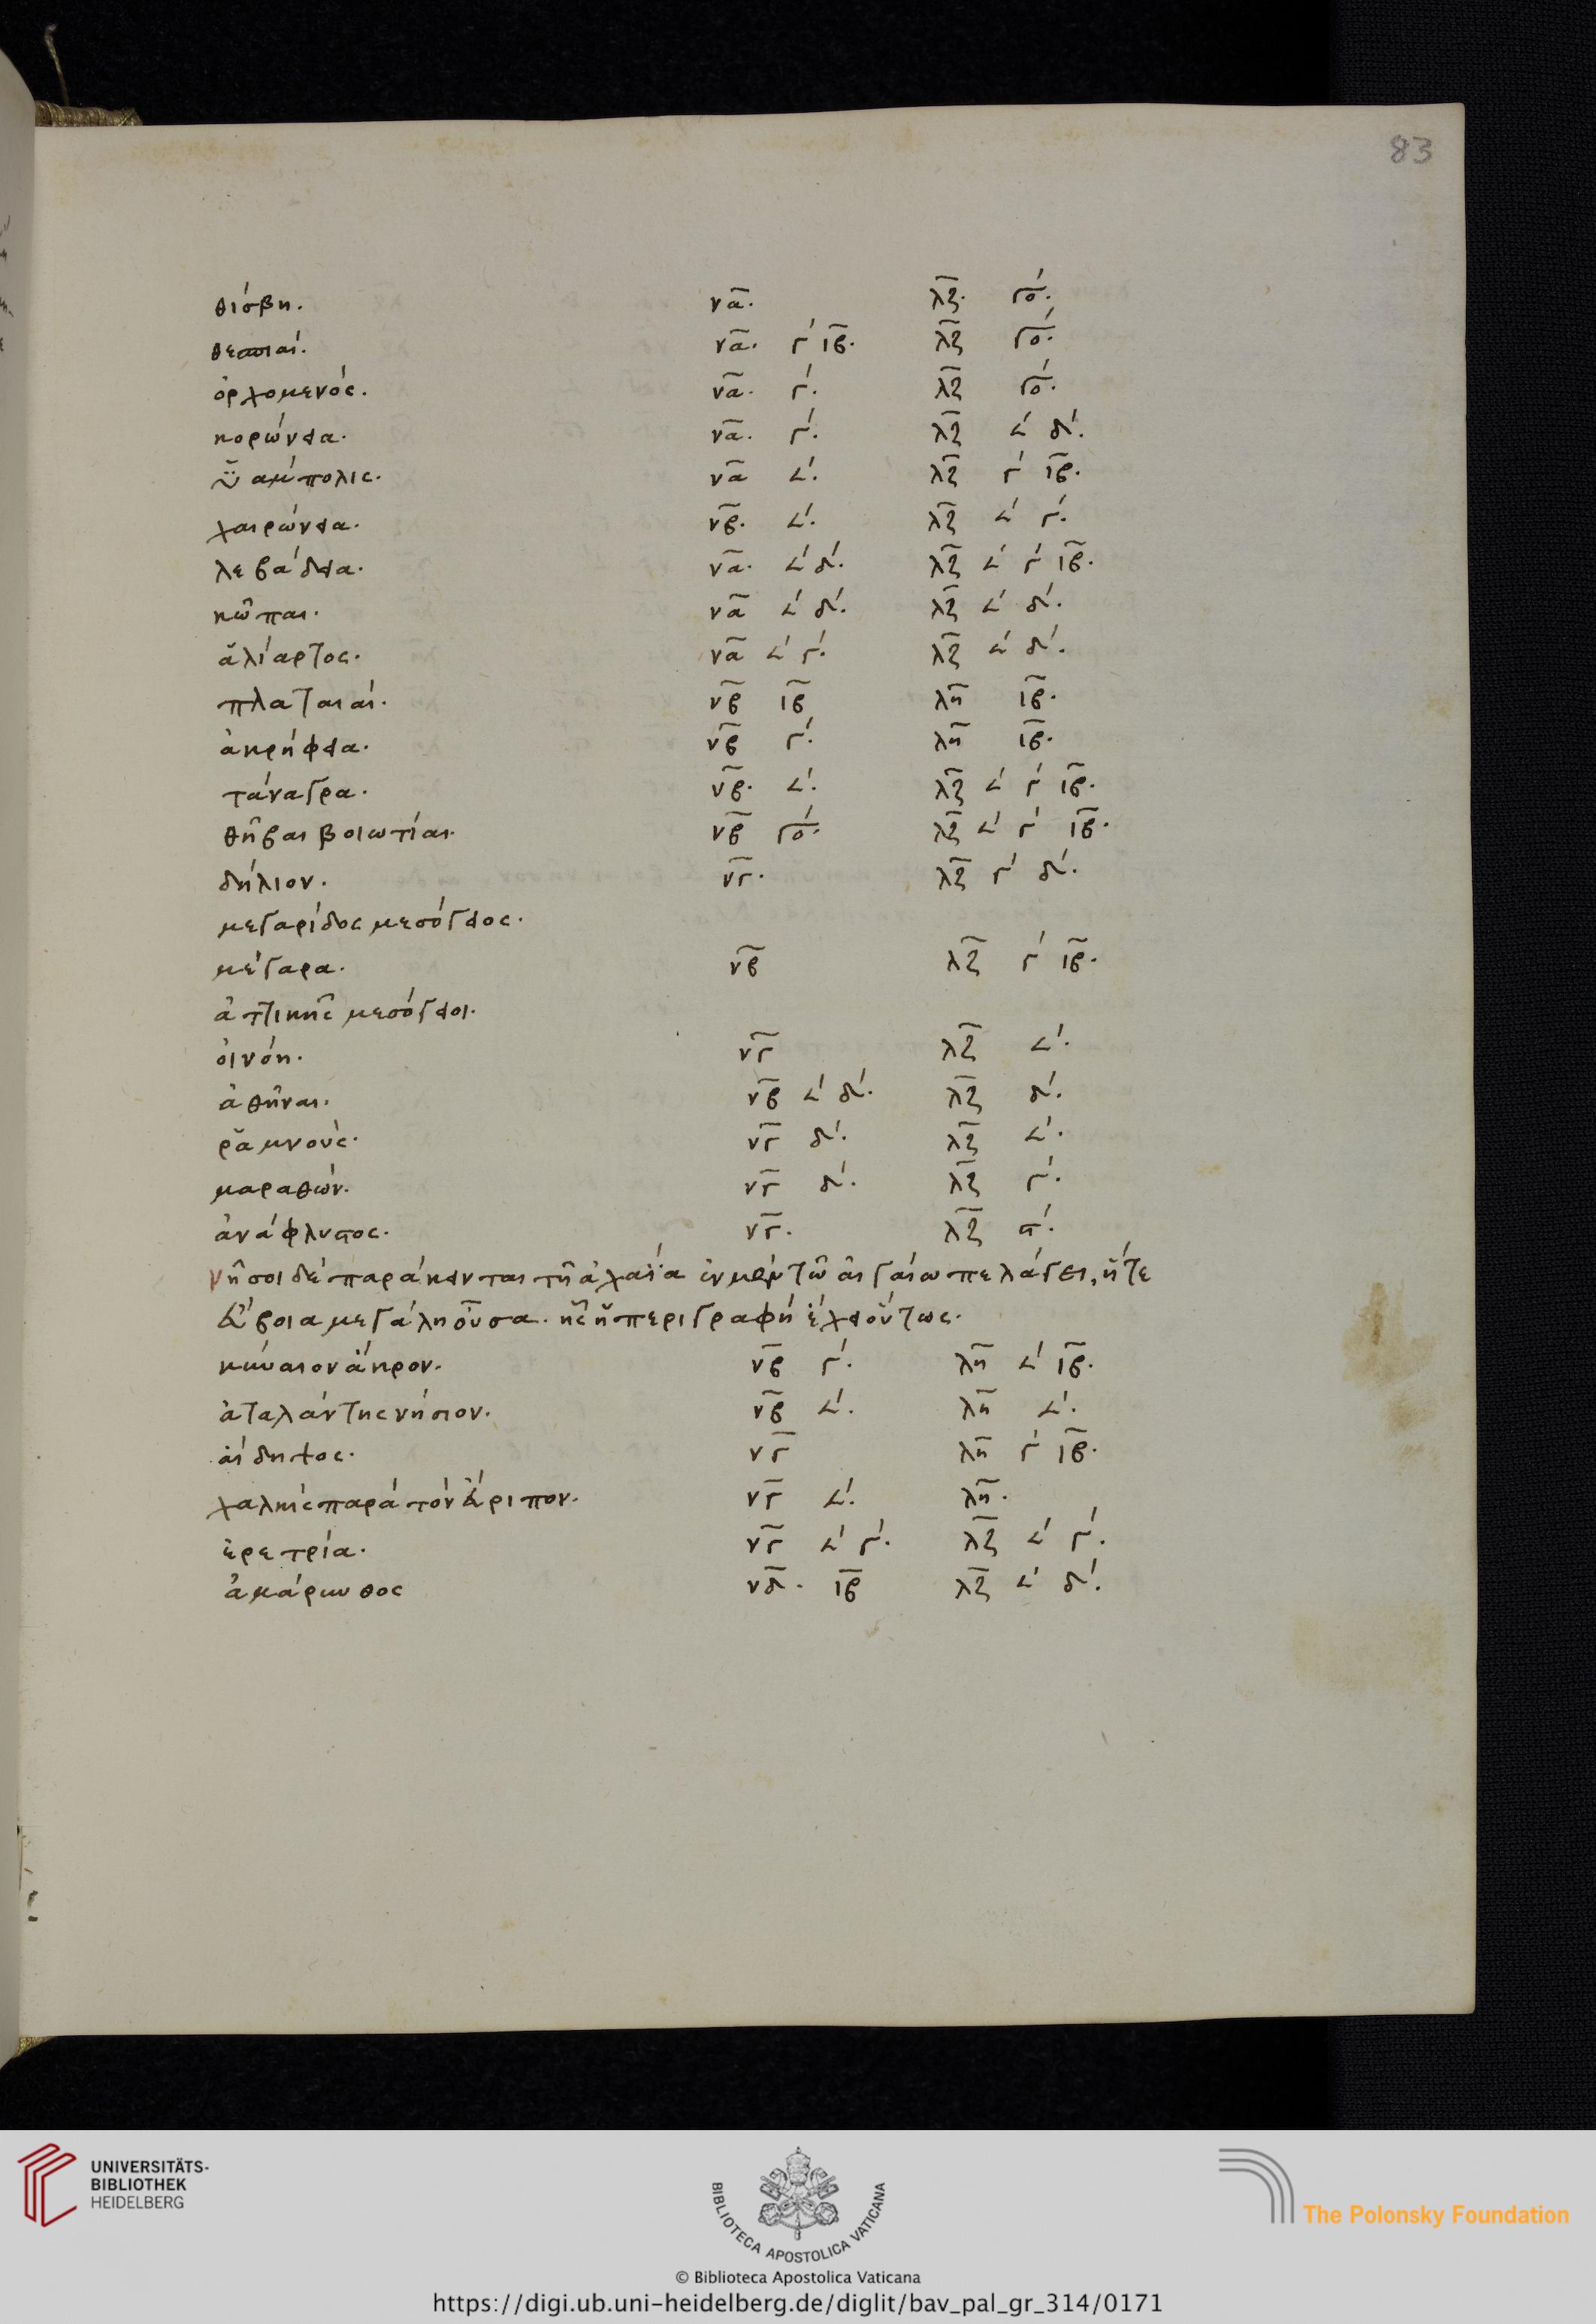 83
θίσβη. να. λζ. γο.
θεσπιαί. να. γ΄ ιβ. λζ γο.
ὀρχομενός. να. γ΄. λζ γο.
κορώνεια. να. γ΄. λζ 𐅵΄ δ΄.
ὑάμπολις. να 𐅵΄. λζ γ΄ ιβ.
χαιρώνεια. νβ. 𐅵΄. λζ 𐅵΄ γ΄.
λεβάδεια. να. 𐅵΄ δ΄. λζ 𐅵΄ γ΄ ιβ.
κῶπαι. να 𐅵΄ δ΄. λζ 𐅵΄ δ΄.
ἁλίαρτος. να 𐅵΄ γ΄. λζ 𐅵΄ δ΄.
πλαταιαί. νβ ιβ λη ιβ.
ἀκρήφεια. νβ γ΄. λη ιβ.
τάναγρα. νβ. 𐅵΄. λζ 𐅵΄ γ΄ ιβ.
θῆβαι βοιωτίαι. νβ γο. λζ 𐅵΄ γ΄ ιβ.
δήλιον. νγ. λζ γ΄ δ΄.
μεγαρίδος μεσόγειος.
μέγαρα. νβ λζ γ΄ ιβ.
ἀττικῆς μεσόγειοι.
οἰνόη. νγ λζ 𐅵΄.
ἀθῆναι. νβ 𐅵΄ δ΄. λζ δ΄.
ῥαμνούς. νγ δ΄. λζ 𐅵΄.
μαραθών. νγ δ΄. λζ γ΄.
ἀνάφλυστος. νγ. λζ ϛ΄.
νῆσοι δὲ παράκεινται τῆ ἀχαΐα ἐν μὲν τῶ αἰγαίω πελάγει, ἥτε
εὔβοια μεγάλη οὖσα. ἧς ἡ περιγραφὴ ἔχει οὕτως.
κήναιον ἄκρον. νβ γ΄. λη 𐅵΄ ιβ.
ἀταλάντης νήσιον. νβ 𐅵΄. λη 𐅵΄.
αἴδηψος. νγ λη γ΄ ιβ.
χαλκὶς παρὰ τὸν εὔριπον. νγ 𐅵΄. λη.
ἐρετρία. νγ 𐅵΄ γ΄. λζ 𐅵΄ γ΄.
ἀμάρυνθος νδ. ιβ λζ 𐅵΄ δ΄.
UNIVERSITÄTS-
BIBLIOTHEK
HEIDELBERG
BIBLIOTECA APOSTOLICA VATICANA
The Polonsky Foundation
© Biblioteca Apostolica Vaticana
https://digi.ub.uni-heidelberg.de/diglit/bav_pal_gr_314/0171